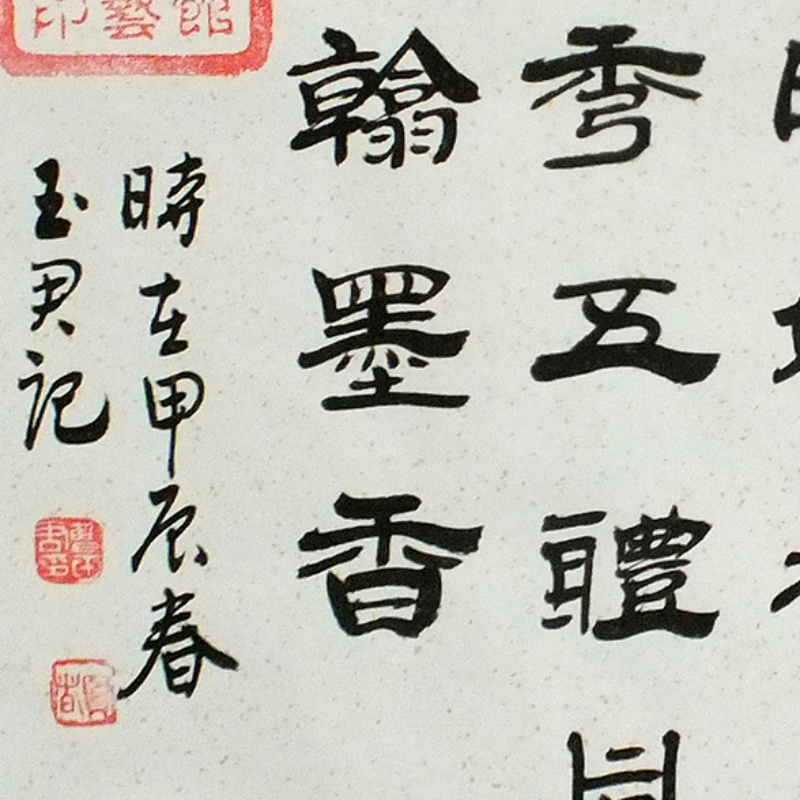 秀五體
翰墨香
時在甲辰春
玉君記
館藝印